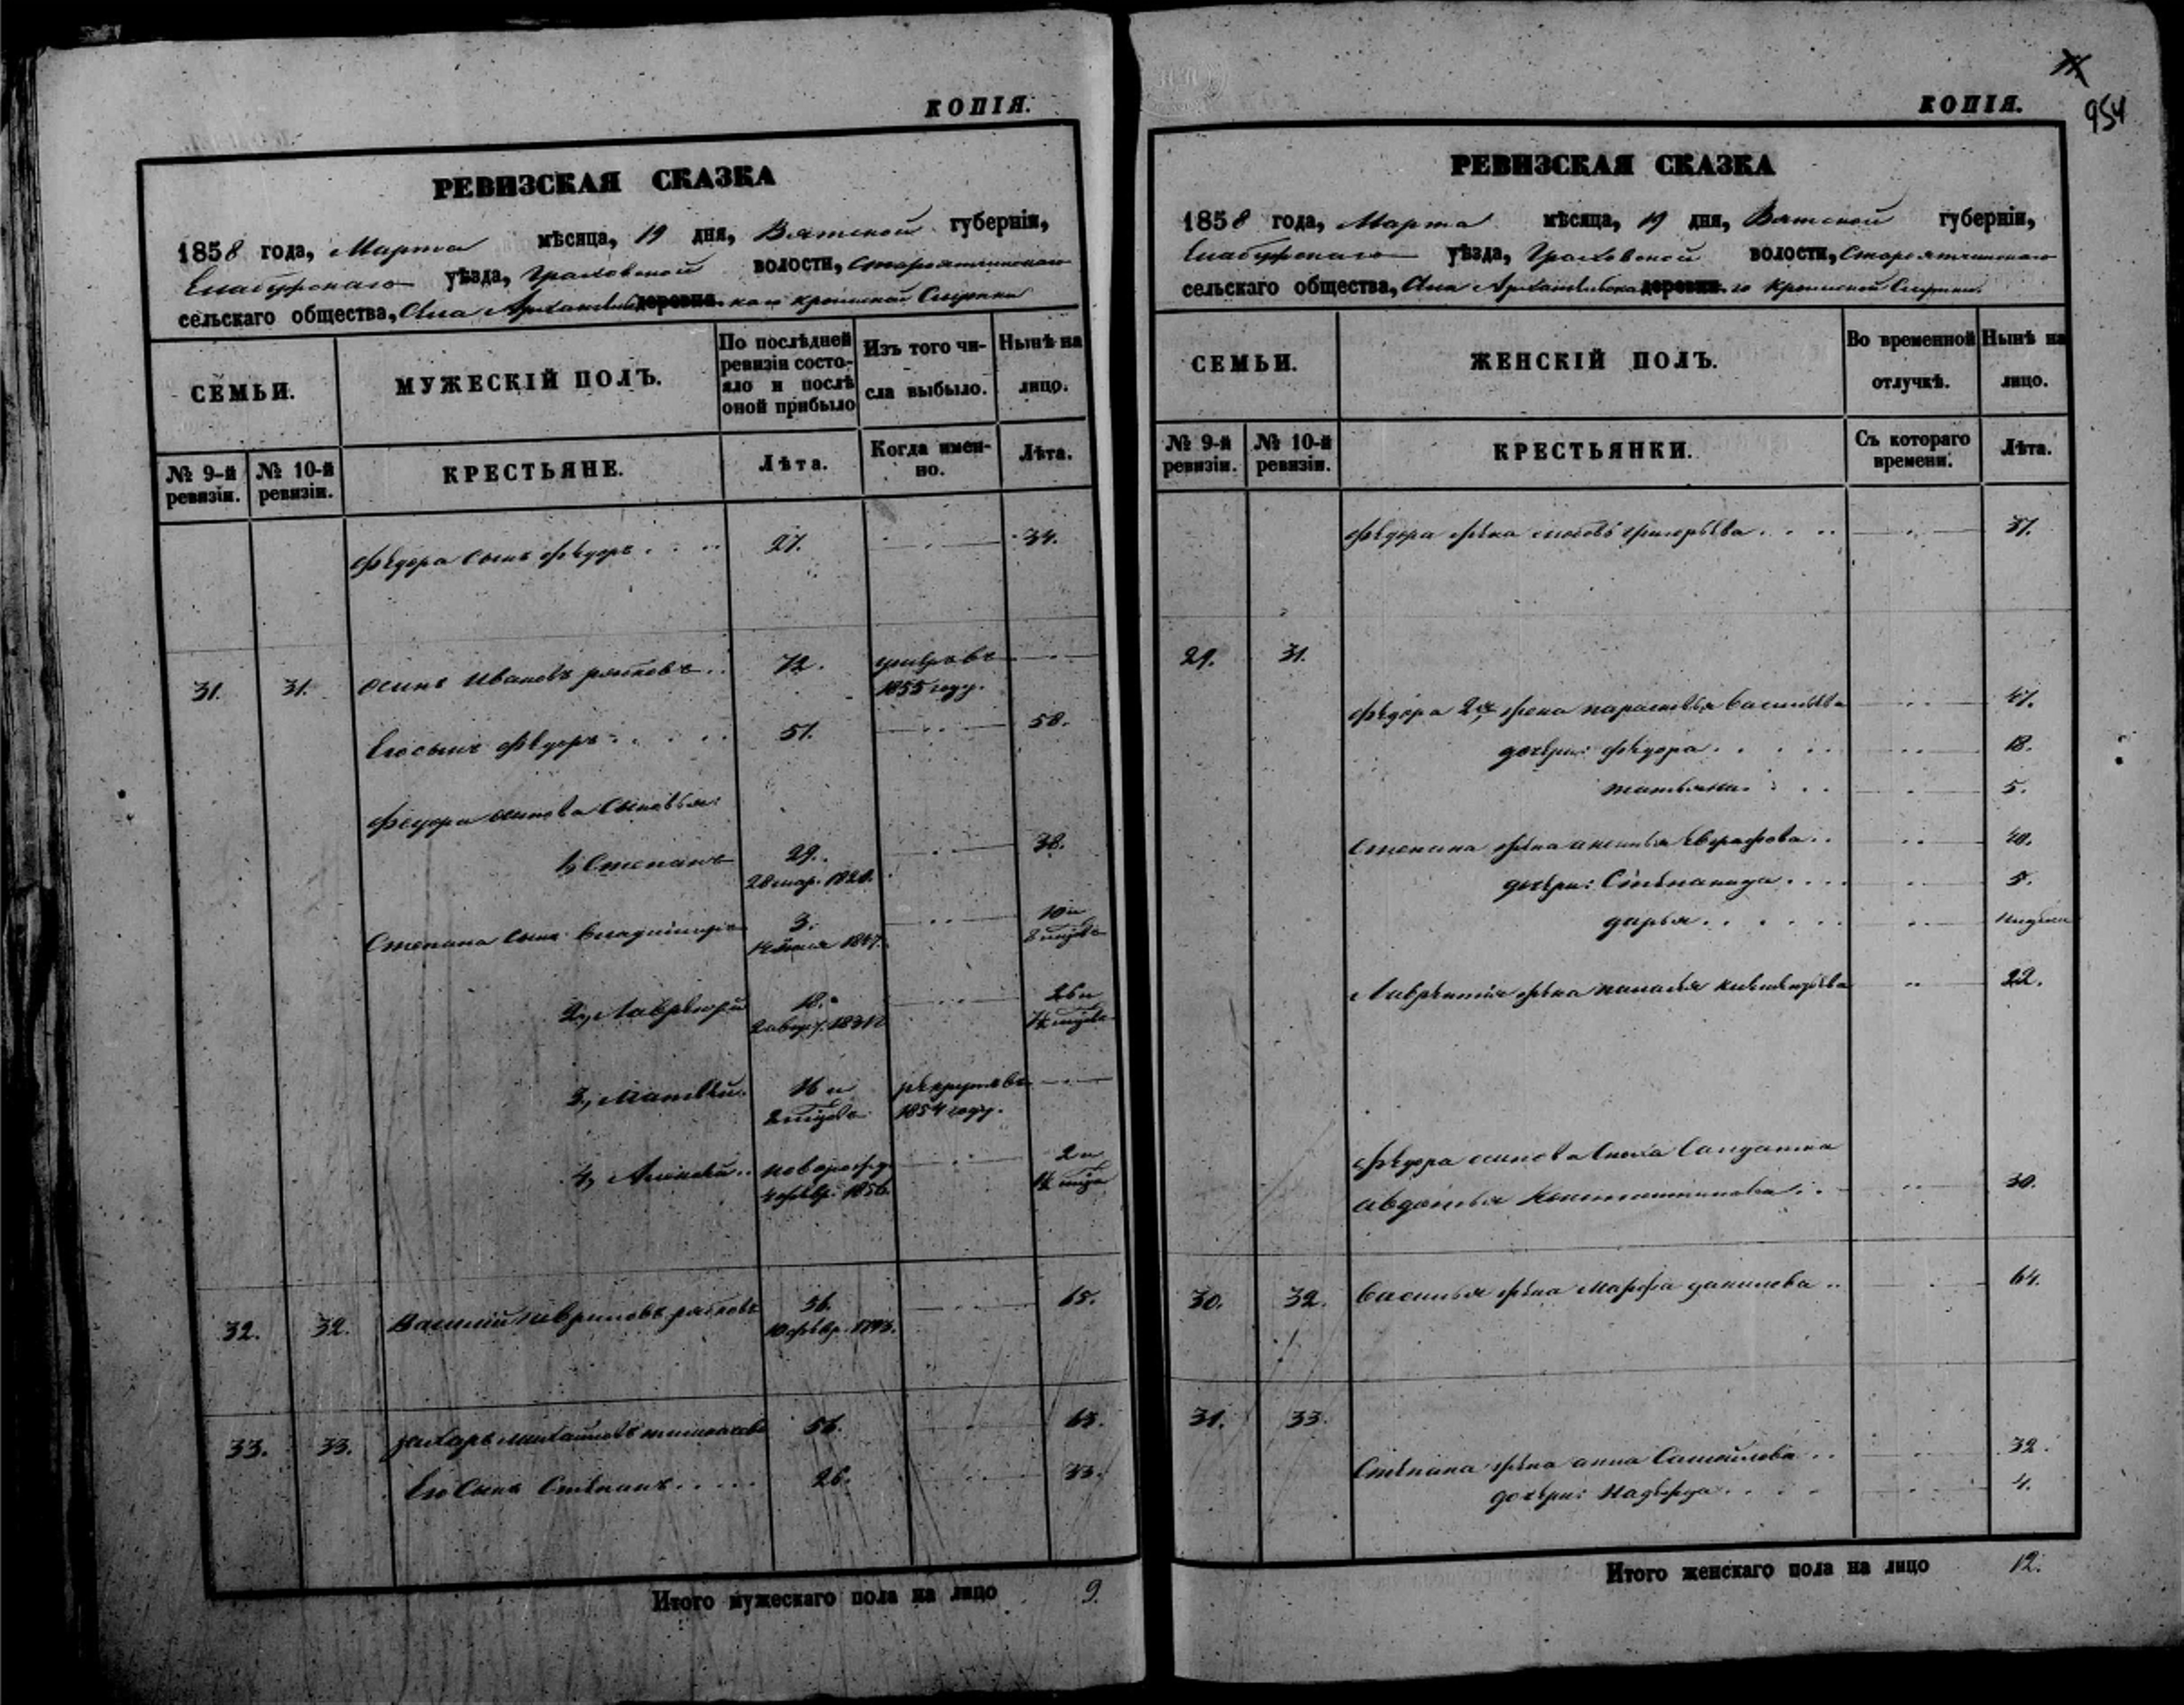 КОПІЯ.
РЕВИЗСКАЯ СКАЗКА
1858 года, Марта мѣсяца, 19 дня, Вятской губерніи,
Елабужскаго уѣзда, Граховской волости, Староятчинскаго
сельскаго общества, Села Архангельскаго деревни
СЕМЬИ.
МУЖЕСКІЙ ПОЛЪ.
По послѣдней ревизіи состояло и послѣ оной прибыло
Изъ того числа выбыло.
Нынѣ на лицо.
№ 9-й ревизіи.
№ 10-й ревизіи.
КРЕСТЬЯНЕ.
Лѣта.
Когда именно.
Лѣта.
Федора сынъ Федоръ 27. 34.
31. 31. Осипъ Ивановъ 72. умеръ въ
1855 году.
Его сынъ Федоръ 51. 58.
Федора Осипова сыновья:
1, Степанъ 29. 38.
28 мар. 1820.
Степана сынъ Владимиръ 3. 10 и
1847. 8 мѣсяц.
2, Лаврентій 18. 26 и
1831
3, Матвѣй 16 и рекрутъ въ
2 мѣсяца 1854 году.
4, Алексѣй новорожд. 2 и
февр. 1856.
32. 32. Василий Гавриловъ 56. 65.
10 февр. 1793.
33. 33. Захаръ Михайловъ 56. 63.
Его сынъ Степанъ 26. 33.
Итого мужескаго пола на лицо 9.
954
КОПІЯ.
РЕВИЗСКАЯ СКАЗКА
1858 года, Марта мѣсяца, 19 дня, Вятской губерніи,
Елабужскаго уѣзда, Граховской волости, Староятчинскаго
сельскаго общества, Села Архангельскаго деревни
СЕМЬИ.
ЖЕНСКІЙ ПОЛЪ.
Во временной отлучкѣ.
Нынѣ на лицо.
№ 9-й ревизіи.
№ 10-й ревизіи.
КРЕСТЬЯНКИ.
Съ котораго времени.
Лѣта.
Федора жена Григорьева 37.
29. 31.
Федора 2я жена Парасковья Васильева 47.
дочери: Федора 18.
Татьяна 5.
Степана жена Аксинья Евграфова 40.
дочери: Степанида 5.
Дарья недели
Лаврентія жена 22.
Федора Осипова сноха солдатка
Авдотья Константинова 30.
30. 32. Василья жена Марфа Данилова 64.
31. 33.
Степана жена Анна Самойлова 32.
дочери: Надежда 4.
Итого женскаго пола на лицо 12.